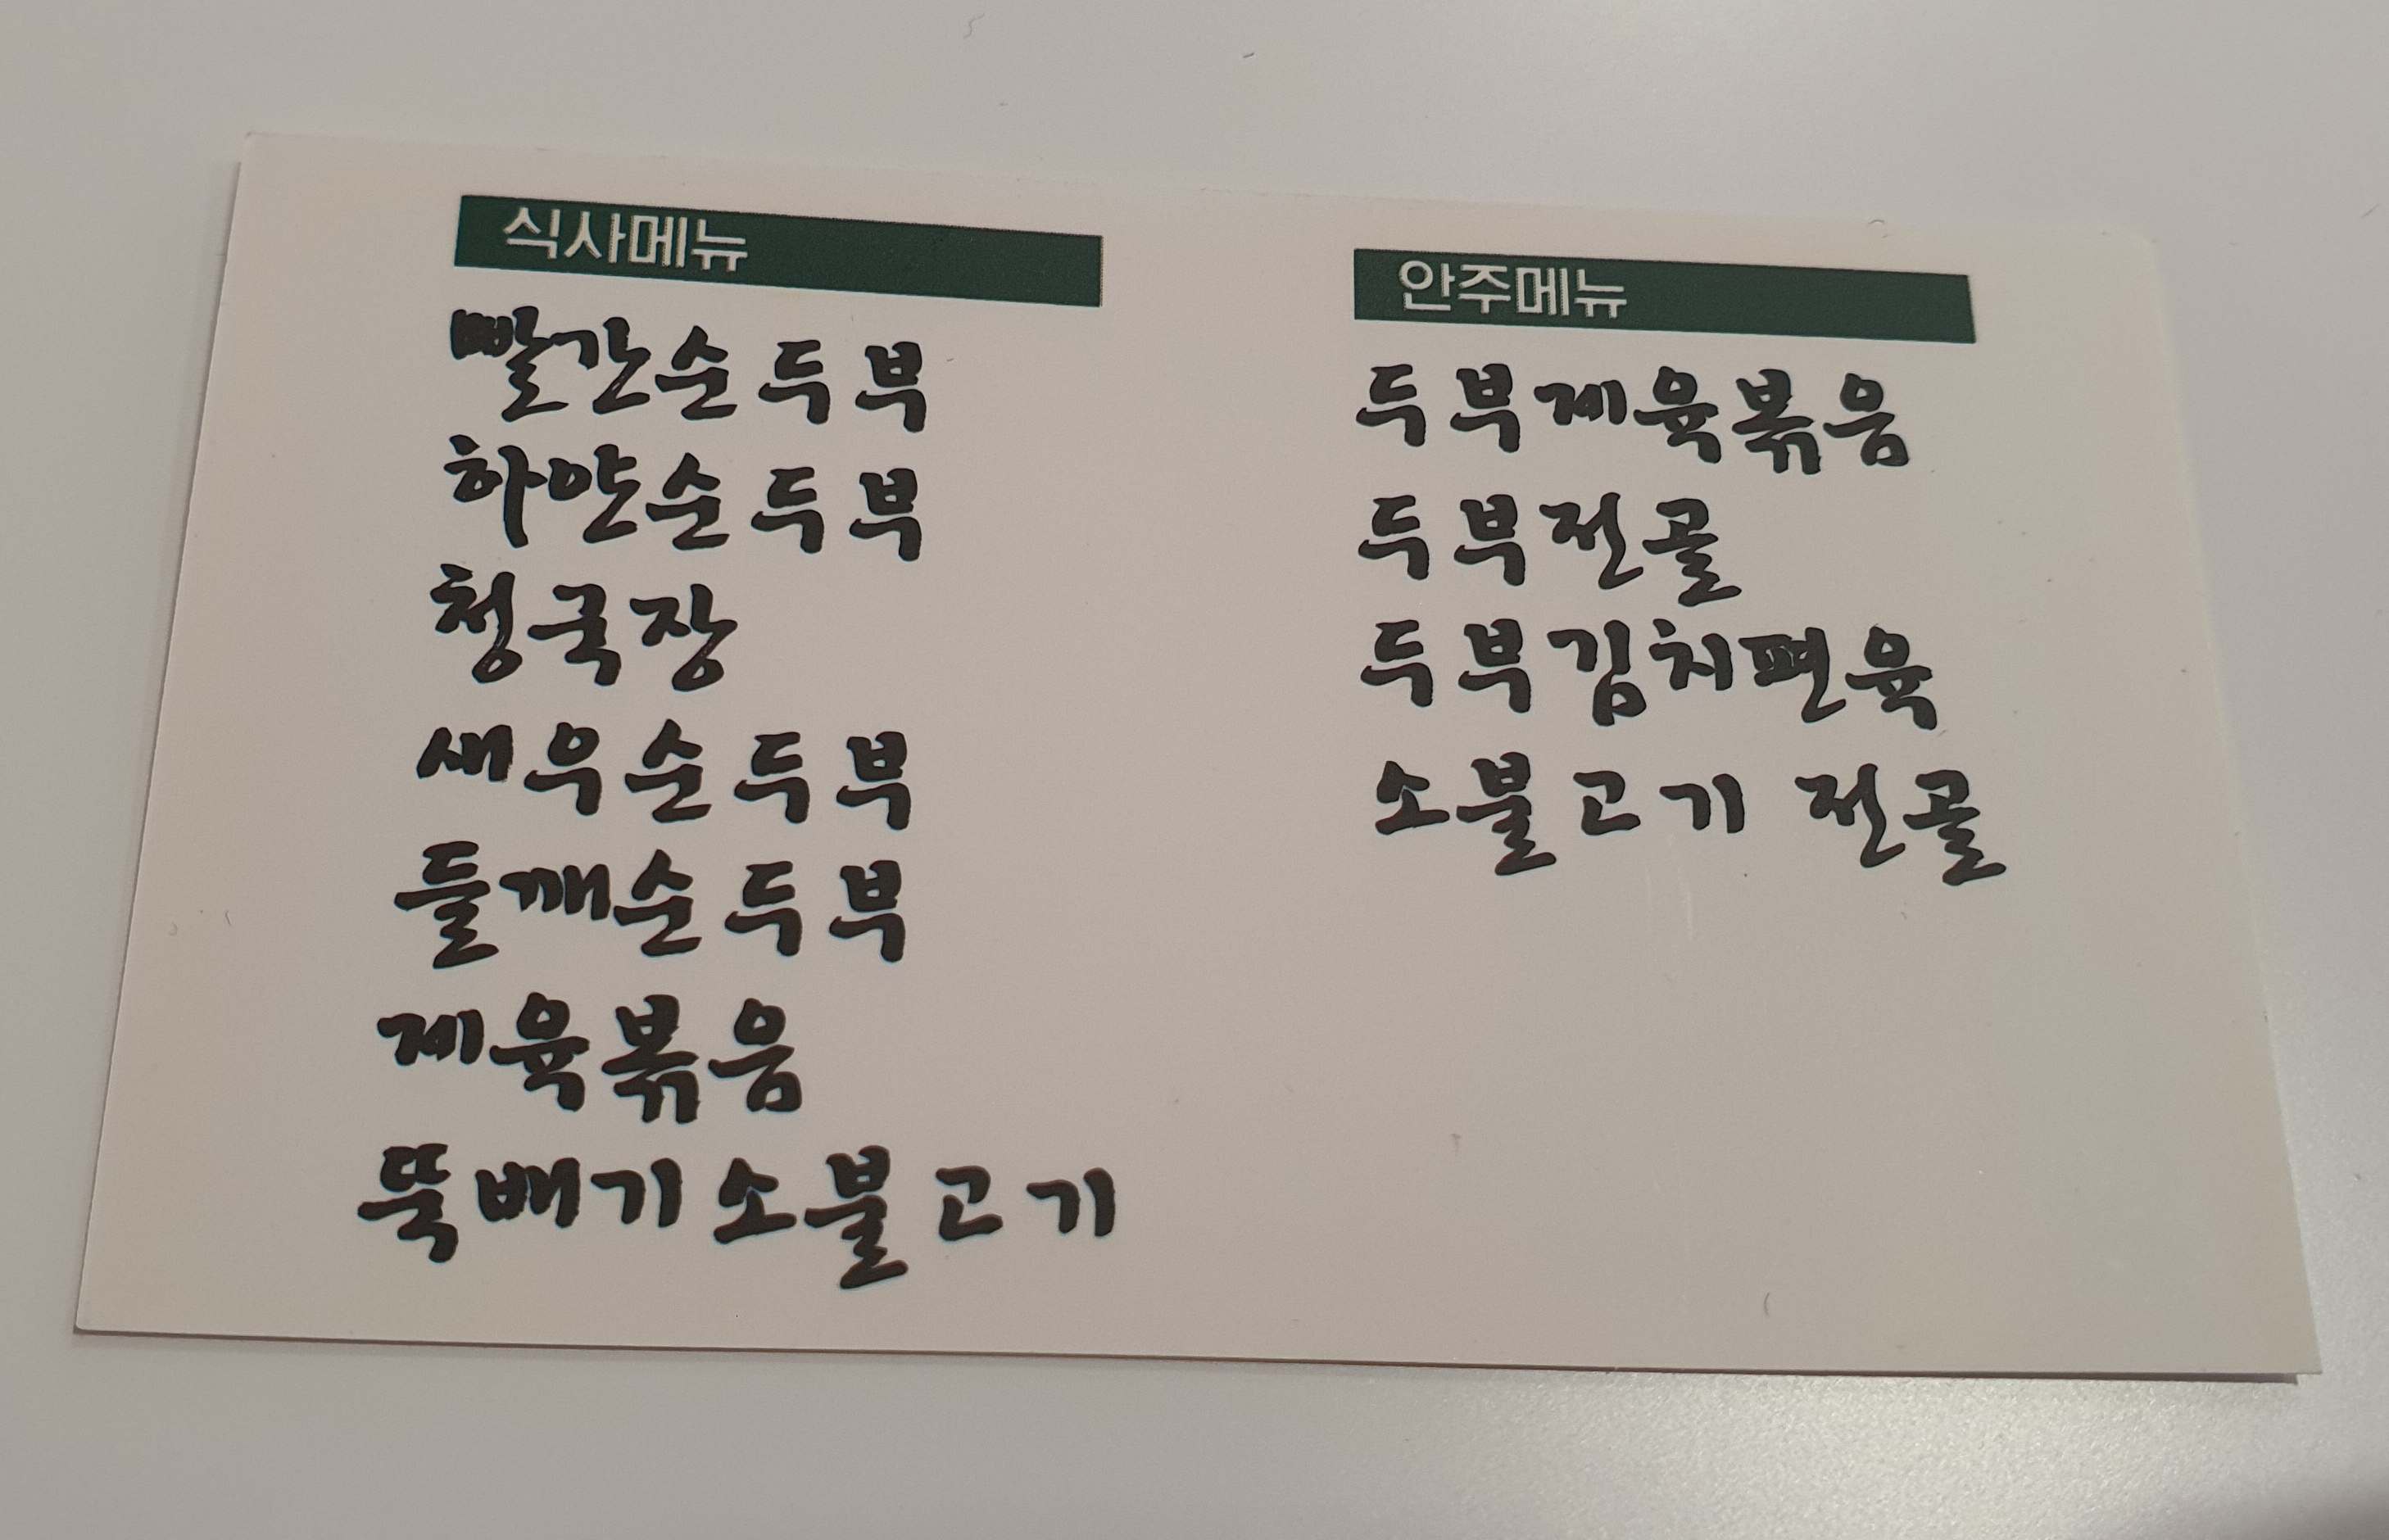 식사메뉴
빨간순두부
하얀순두부
청국장
새우순두부
들깨순두부
제육볶음
뚝배기소불고기
안주메뉴
두부제육볶음
두부전골
두부김치편육
소불고기 전골